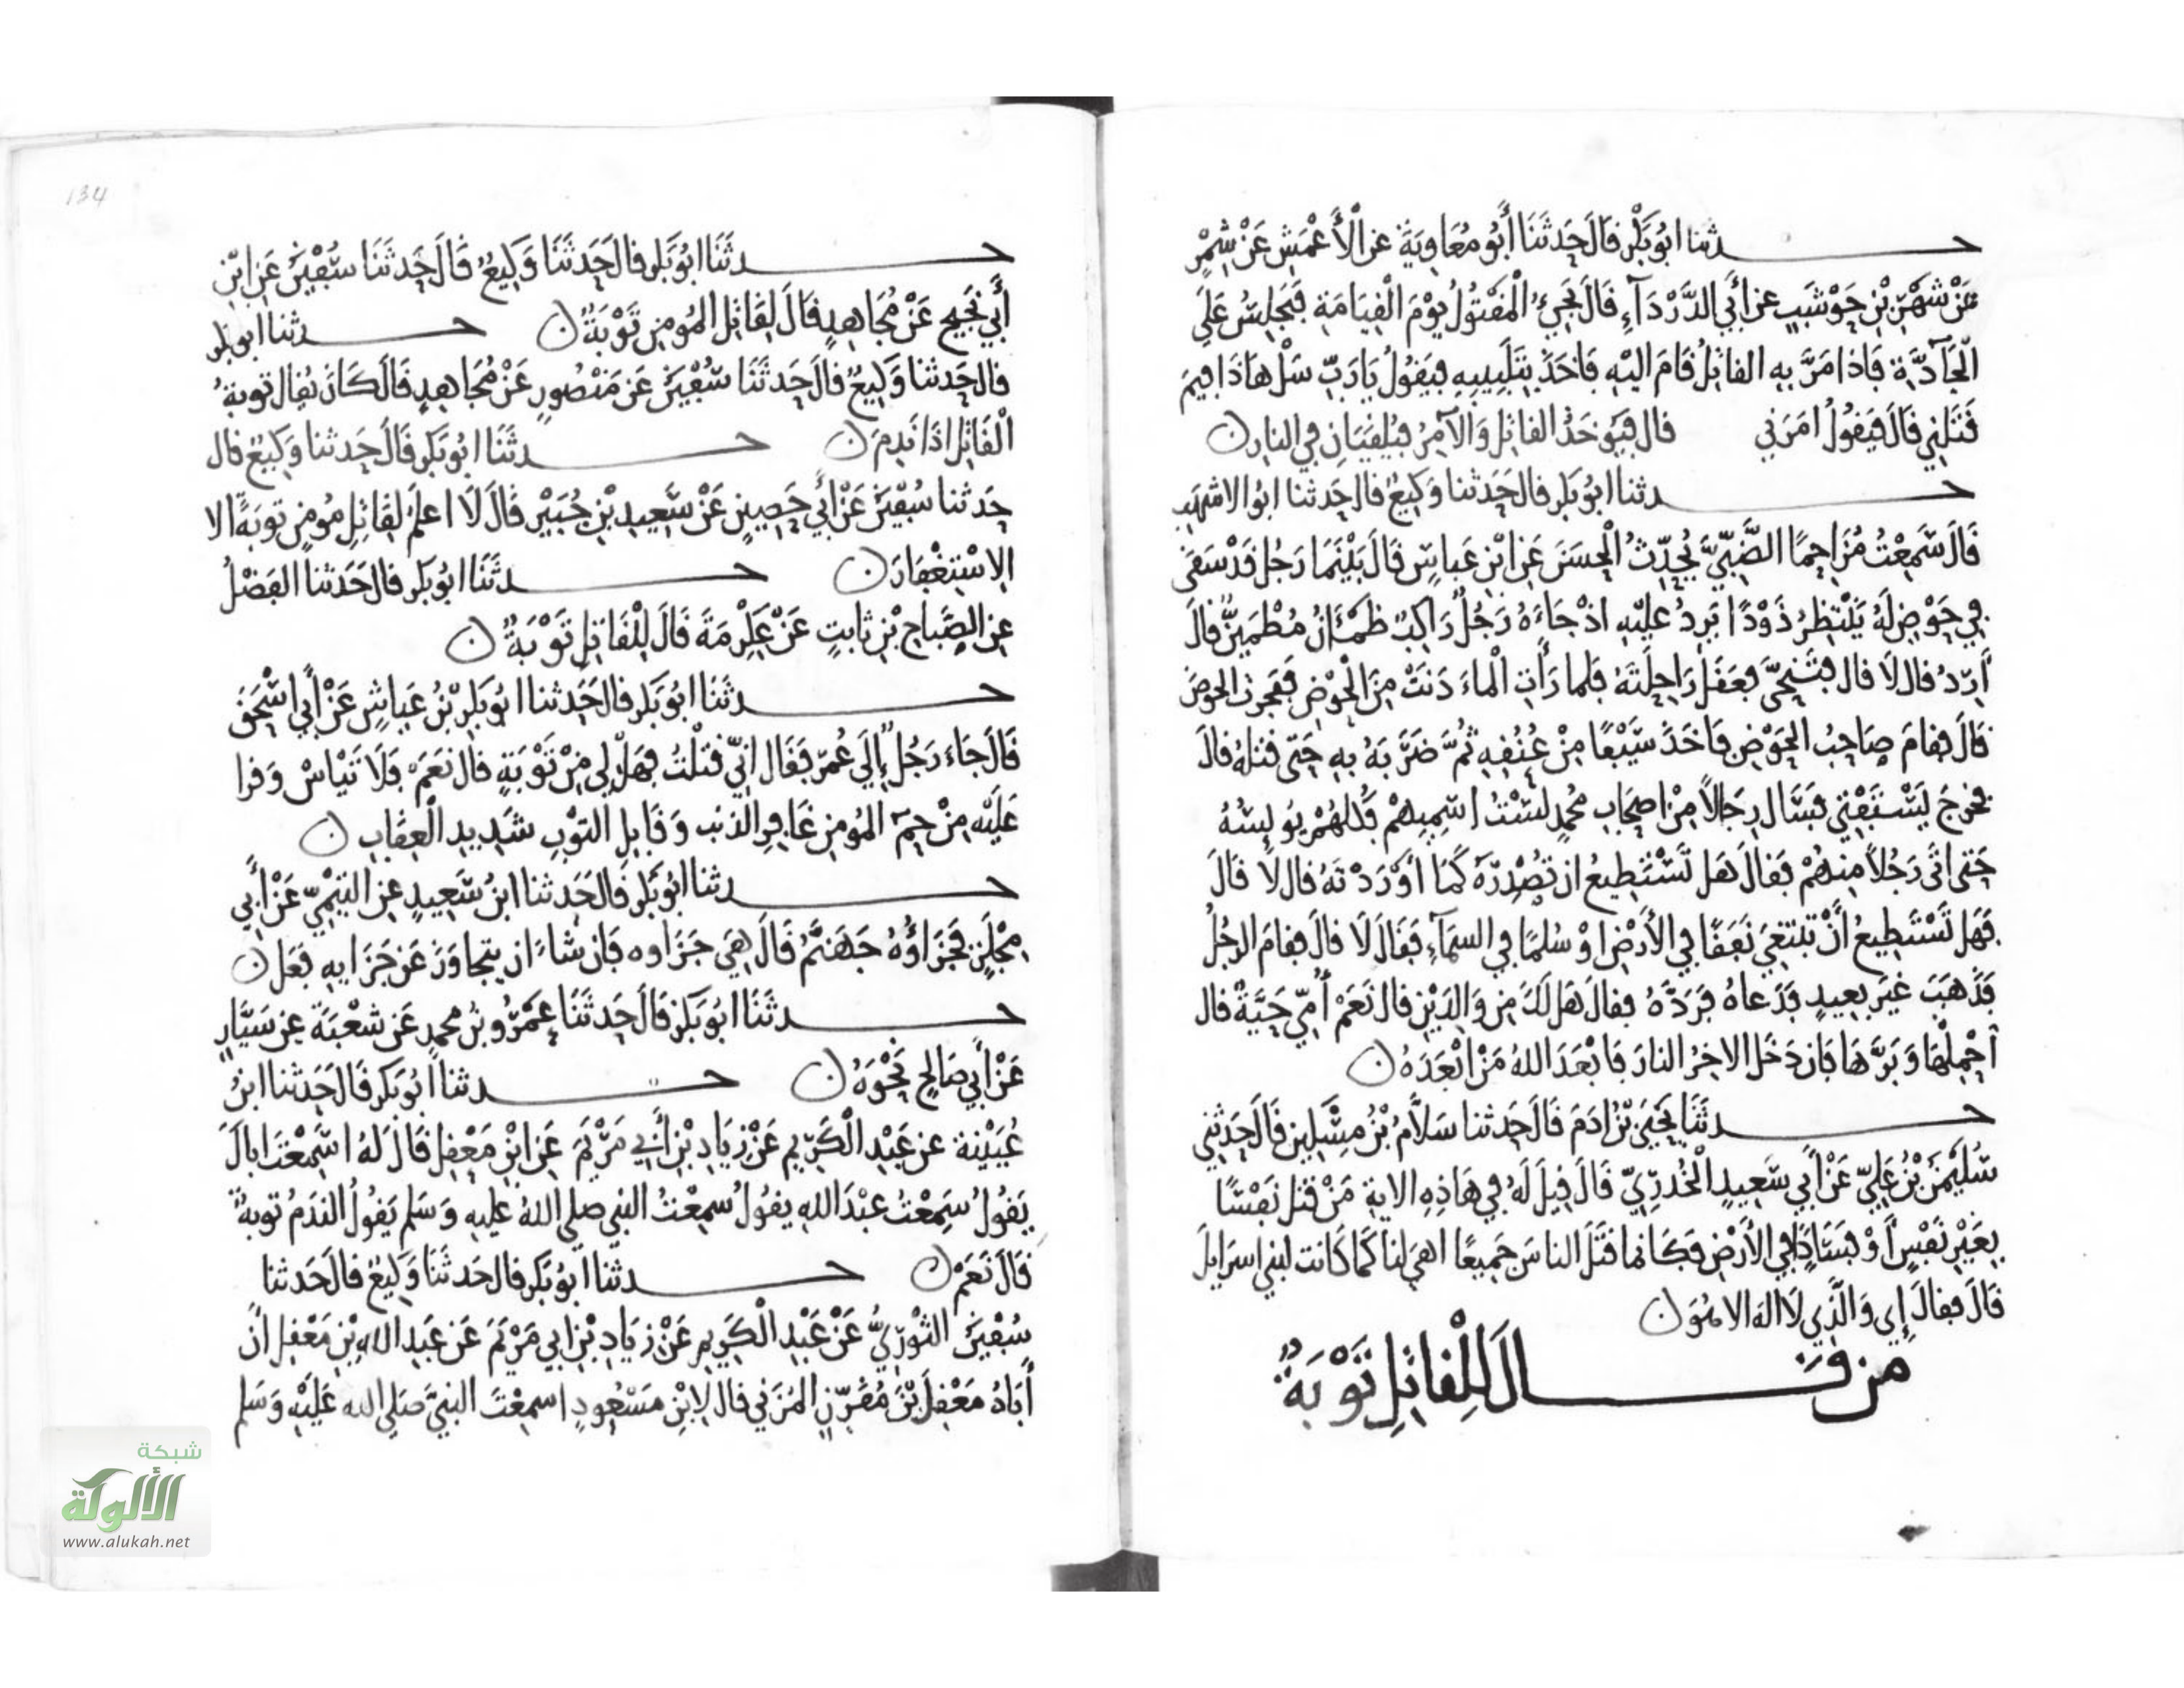 حدثنا ابُو بَكْرٍ قَالَ حَدثَنَا أَبُو مُعَاوِيَةَ عن الْأَعْمَشِ عَنْ شِمْرٍ
عَنْ شَهْرِ بْنِ حَوْشَبٍ عن أَبِي الدَّرْدَآءِ قَالَ يَجِيءُ الْمَقْتُولُ يَوْمَ الْقِيَامَةِ فَيَجْلِسُ عَلَى
الْجَآدَّةِ فَاذا مَرَّ بِهِ القاتِلُ قَامَ اليْهِ فَاخَذَ بِتَلْبِيبِهِ فيَقُولُ يَا رَبِّ سَلْ هَاذَا فِيمَ
قَتَلَنِي قَالَ فَيَقُولُ امَرَنِي قال فَيُوخَذُ القاتِلُ وَالآمِرُ فيُلقيَانِ فِي النارِ ن
حدثنا ابُو بَكرٍ قال حَدثنا وَكِيعٌ قال حَدثنا ابُو الاشهَبِ
قَالَ سَمِعْتُ مُزَاحِمًا الضَّبِّيَّ يُحَدِّثُ الْحِسَنَ عَنِ ابْنِ عَباسٍ قَالَ بَيْنَمَا رَجُل قَدْ سَقَى
فِي حَوْضٍ لَهُ يَنْتظِرُ ذَوْدًا تَرِدُ عليْهِ اذْ جَاءَهُ رَجُلٌ رَاكِبٌ ظمْـَٔانُ مُطْمَيِنٌّ قالَ
أَرِدُ قال لَا قال فتَنَحَّى فعَقَلَ رَاحِلَتَهُ فلما رَأَتِ الْماءَ دَنَتْ مِنَ الْحَوْضِ ففجرتِ الحَوضَ
قَالَ فقامَ صَاحِبُ الحَوْضِ فَاخَذَ سَيْفًا مِنْ عُنُقِهِ ثُمَّ ضَرَبَهُ بِهِ حَتى قتلهُ قالَ
فخرَجَ يَسْتَفْتِي فسَأل رِجَالًا مِنْ اصحَابِ مُحمدٍ لسْتُ اسَمِيهمْ فكلهُمْ يُويِسُهُ
حَتى اتَى رَجُلًا مِنهُمْ فقالَ هَل تَسْتَطِيعُ ان تُصْدِرَهُ كَمَا أَوْرَدْتَهُ قال لَا قَالَ
فَهَل تَسْتَطِيعُ أَنْ تَبْتَغِيَ نَفَقًا فِي الأَرْضِ اوْ سُلمًا فِي السمَآءِ فقَالَ لَا قالَ فقامَ الرجُلُ
فَذَهَبَ غيَر بَعِيدٍ فَدَعاهُ فَرَدَّهُ فقالَ هَل لَكَ مِن وَالِدَيْنِ قال نَعَمْ أُمِّي حَيَّةٌ قال
احْمِلْهَا وَبَرَّهَا فَاِن دَخَل الاخِرُ النارَ فَابْعَدَ اللهُ مَنْ ابْعَدَهُ ن
حدثنَا يَحْيَى بْنُ ادَمَ قَالَ حَدثنا سَلَّامُ بْنُ مِسْكِينٍ قَالَ حَدثنِي
سُلَيْمَنُ بْنُ عَلِيٍّ عَنْ أَبِي سَعِيدٍ الْخُدرِيِّ قَالَ قِيلَ لَهُ فِي هَاذِهِ الايةِ مَنْ قتل نَفْسًا
بِغَيْرِ نَفْسٍ أَوْ فسَادٍ فِي الأَرْضِ فكَانما قَتَلَ الناسَ جَمِيعًا اهِيَ لنا كَمَا كَانت لبنِي اسرَايِلَ
قَالَ فقالَ إِي وَالَّذِي لَا اله الا هُوَ ن
من قـــال لِلْقاتِلِ تَوْبَةٌ
134
حدثَنَا ابُو بَكر قال حَدثَنَا وَكِيعٌ قَالَ حَدثَنَا سُفْيَنُ عَن ابْنِ
أَبِي نَجِيحٍ عَنْ مُجَاهِدٍ قَالَ لِقَاتِل المُومِنِ تَوْبَةٌ ن حدثنا ابو بكر
قال حَدثنا وَكِيعٌ قالَ حَدثَنَا سُفْيَنُ عَن مَنْصُورٍ عَنْ مُجَاهِدٍ قَالَ كَانَ يُقال توبةُ
الْقَاتِل اذَا نَدِمَ ن حدثَنَا ابُو بَكرٍ قَالَ حَدثنا وَكِيعٌ قال
حَدثنا سُفْيَنُ عَنْ أَبِي حَصِينٍ عَنْ سَعِيدِ بْنِ جُبَيْرٍ قَالَ لَا اعلَمُ لِقَاتِلِ مُومِنٍ توبَةً الا
الِاسْتِغْفَارَ ن حدثَنَا ابُو بَكر قال حَدثنا الفَضْلُ
عن الصَّبَاحِ بْنِ ثابتٍ عَنْ عِكْرِمَةَ قَالَ لِلْقَاتِلِ تَوْبَةٌ ن
حدثَنَا ابُو بَكر قال حَدثنا ابُو بَكرِ بْنُ عَياشٍ عَنْ أَبِي اسْحَقَ
قَالَ جَاءَ رَجُلٌ إِلَى عُمَرَ فقَال انِّي قتلْتُ فهَلْ لِي مِنْ تَوْبَةٍ قال نعَمْ فَلَا تَيْاسْ وَقرا
عَلَيْهِ مِنْ حم المُومن غَافِرِ الذنب وَقَابِلِ التوْبِ شَدِيدِ الْعِقَابِ ن
حدثنا ابُو بَكر قالَ حَدثنا ابنُ سَعِيدٍ عن التيْمِيِّ عَنْ أَبِي
مِجْلَزٍ فَجَزَاؤُهُ جَهَنَّمُ قَالَ هِيَ جَزَاوه فَاِن شاءَ ان يتجَاوَزَ عَن جَزَايِهِ فعَل ن
حدثَنَا ابُو بَكر قَالَ حَدثَنَا عَمْرُو بنُ محمدٍ عَن شعْبَةَ عن سَيَّارٍ
عَنْ أَبِي صَالِحٍ نَحْوَهُ ن حدثنا أَبُو بَكر قَالَ حَدثنا ابنُ
عُيَيْنة عن عَبْدِ الْكَرِيمِ عَنْ زِيَادِ بْنِ أَبِي مَرْيَمَ عَنِ ابْنِ مَعْقِلٍ قَالَ لَهُ اسَمِعْتَ اباكَ
يَقُولُ سَمِعْتُ عبْدَ اللهِ يقُولُ سمِعْتُ النبي صلى اللهُ عليهِ وَسَلم يَقُولُ الندَمُ توبةٌ
قَالَ نَعَمْ ن حدثنا ابُو بَكر قال حَدثَنَا وَكِيعٌ قالَ حَدثنا
سُفْيَنُ الثوْرِيُّ عَنْ عَبْدِ الْكَرِيمِ عَنْ زيَادِ بْنِ ابِي مَرْيَمَ عَن عَبدِ اللهِ بْنِ مَعْقِلٍ أنَّ
أَبَاهُ مَعْقِلَ بْنَ مُقَرِّنٍ المُزَنِي قال لِابْنِ مَسْعُودٍ اسمِعْتَ النبيَّ صَلى الله عَلَيْهِ وَسَلم
شبكة
الألوكة
www.alukah.net